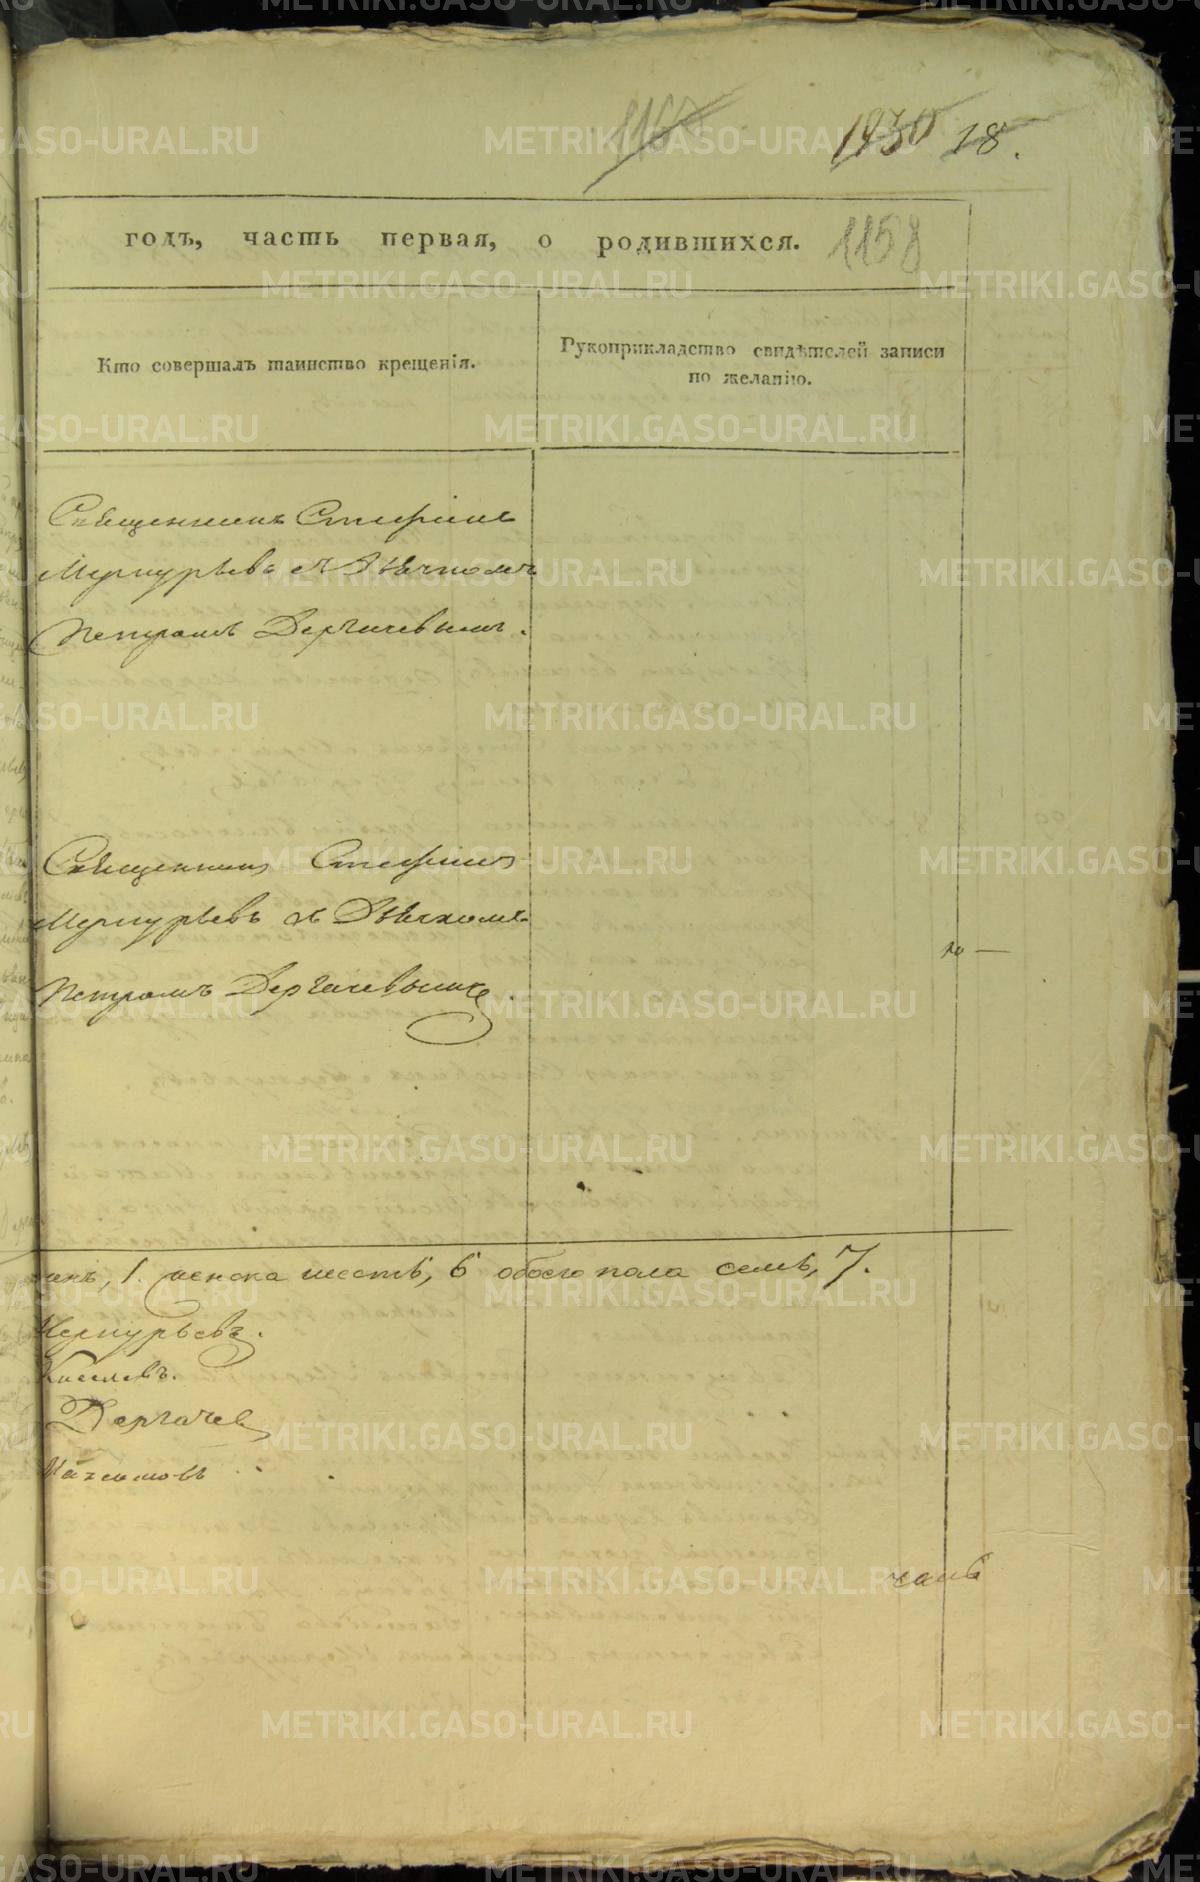 1167
1930 18.
годъ, часть первая, о родившихся. 1158
Кто совершалъ таинство крещенія.
Рукоприкладство свидѣтелей записи
по желанію.
Священникъ Стефанъ
Меркурьевъ съ Дьячкомъ
Петромъ Дергачевымъ.
Священникъ Стефанъ
Меркурьевъ съ Дьячкомъ
Петромъ Дергачевымъ.
1. женска шесть, 6 обоего пола семь, 7.
Меркурьевъ.
Киселевъ.
Дергачев
METRIKI.GASO-URAL.RU